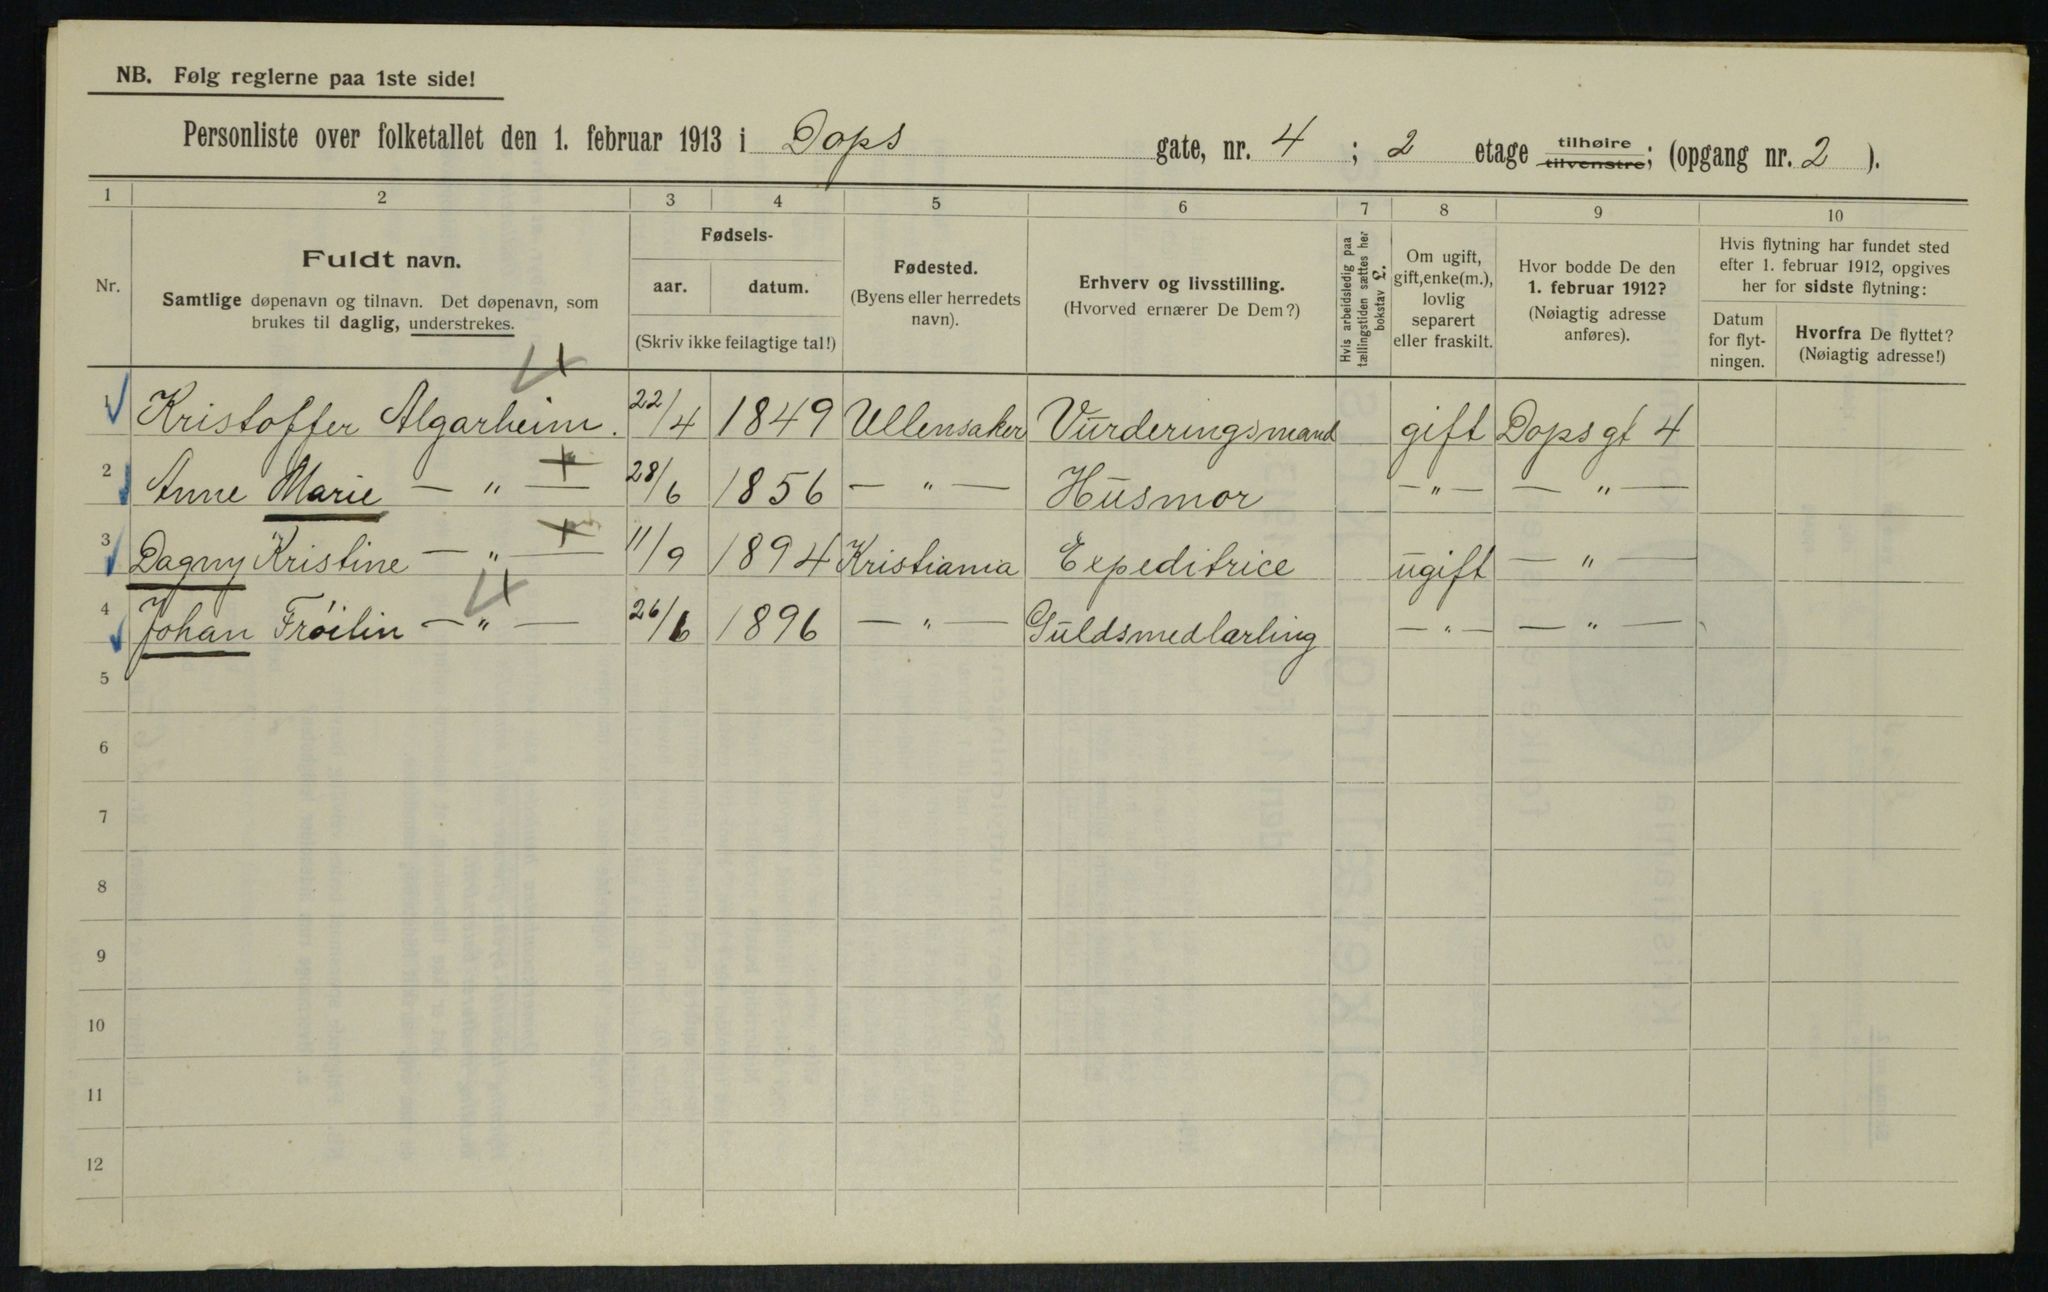 NB. Følg reglerne paa 1ste side!
Personliste over folketallet den 1. februar 1913 i Dops gate, nr. 4 ; 2 etage tilhøire tilvenstre; (opgang nr. 2 ).
1 2 3 4 5 6 7 8 9 10
Nr.
Fuldt navn.
Samtlige døpenavn og tilnavn. Det døpenavn, som
brukes til daglig, understrekes.
Fødsels-
aar. datum.
(Skriv ikke feilagtige tal!)
Fødested.
(Byens eller herredets
navn).
Erhverv og livsstilling.
(Hvorved ernærer De Dem?)
Hvis arbeidsledig paa
tællingstiden sættes her
bokstav L.
Om ugift,
gift, enke(m.),
lovlig
separert
eller fraskilt.
Hvor bodde De den
1. februar 1912?
(Nøiagtig adresse
anføres).
Hvis flytning har fundet sted
efter 1. februar 1912, opgives
her for sidste flytning:
Datum
for flyt-
ningen.
Hvorfra De flyttet?
(Nøiagtig adresse!)
1 Kristoffer Algarheim. 22/4 1849 Ullensaker Vurderingsmand gift Dops gt 4
2 Anne Marie — " — 28/6 1856 — " — Husmor — " — — " —
3 Dagny Kristine — " — 11/9 1894 Kristiania Expeditrice ugift — " —
4 Johan Fröilin — " — 26/6 1896 — " — Guldsmedlærling — " — — " —
5
6
7
8
9
10
11
12